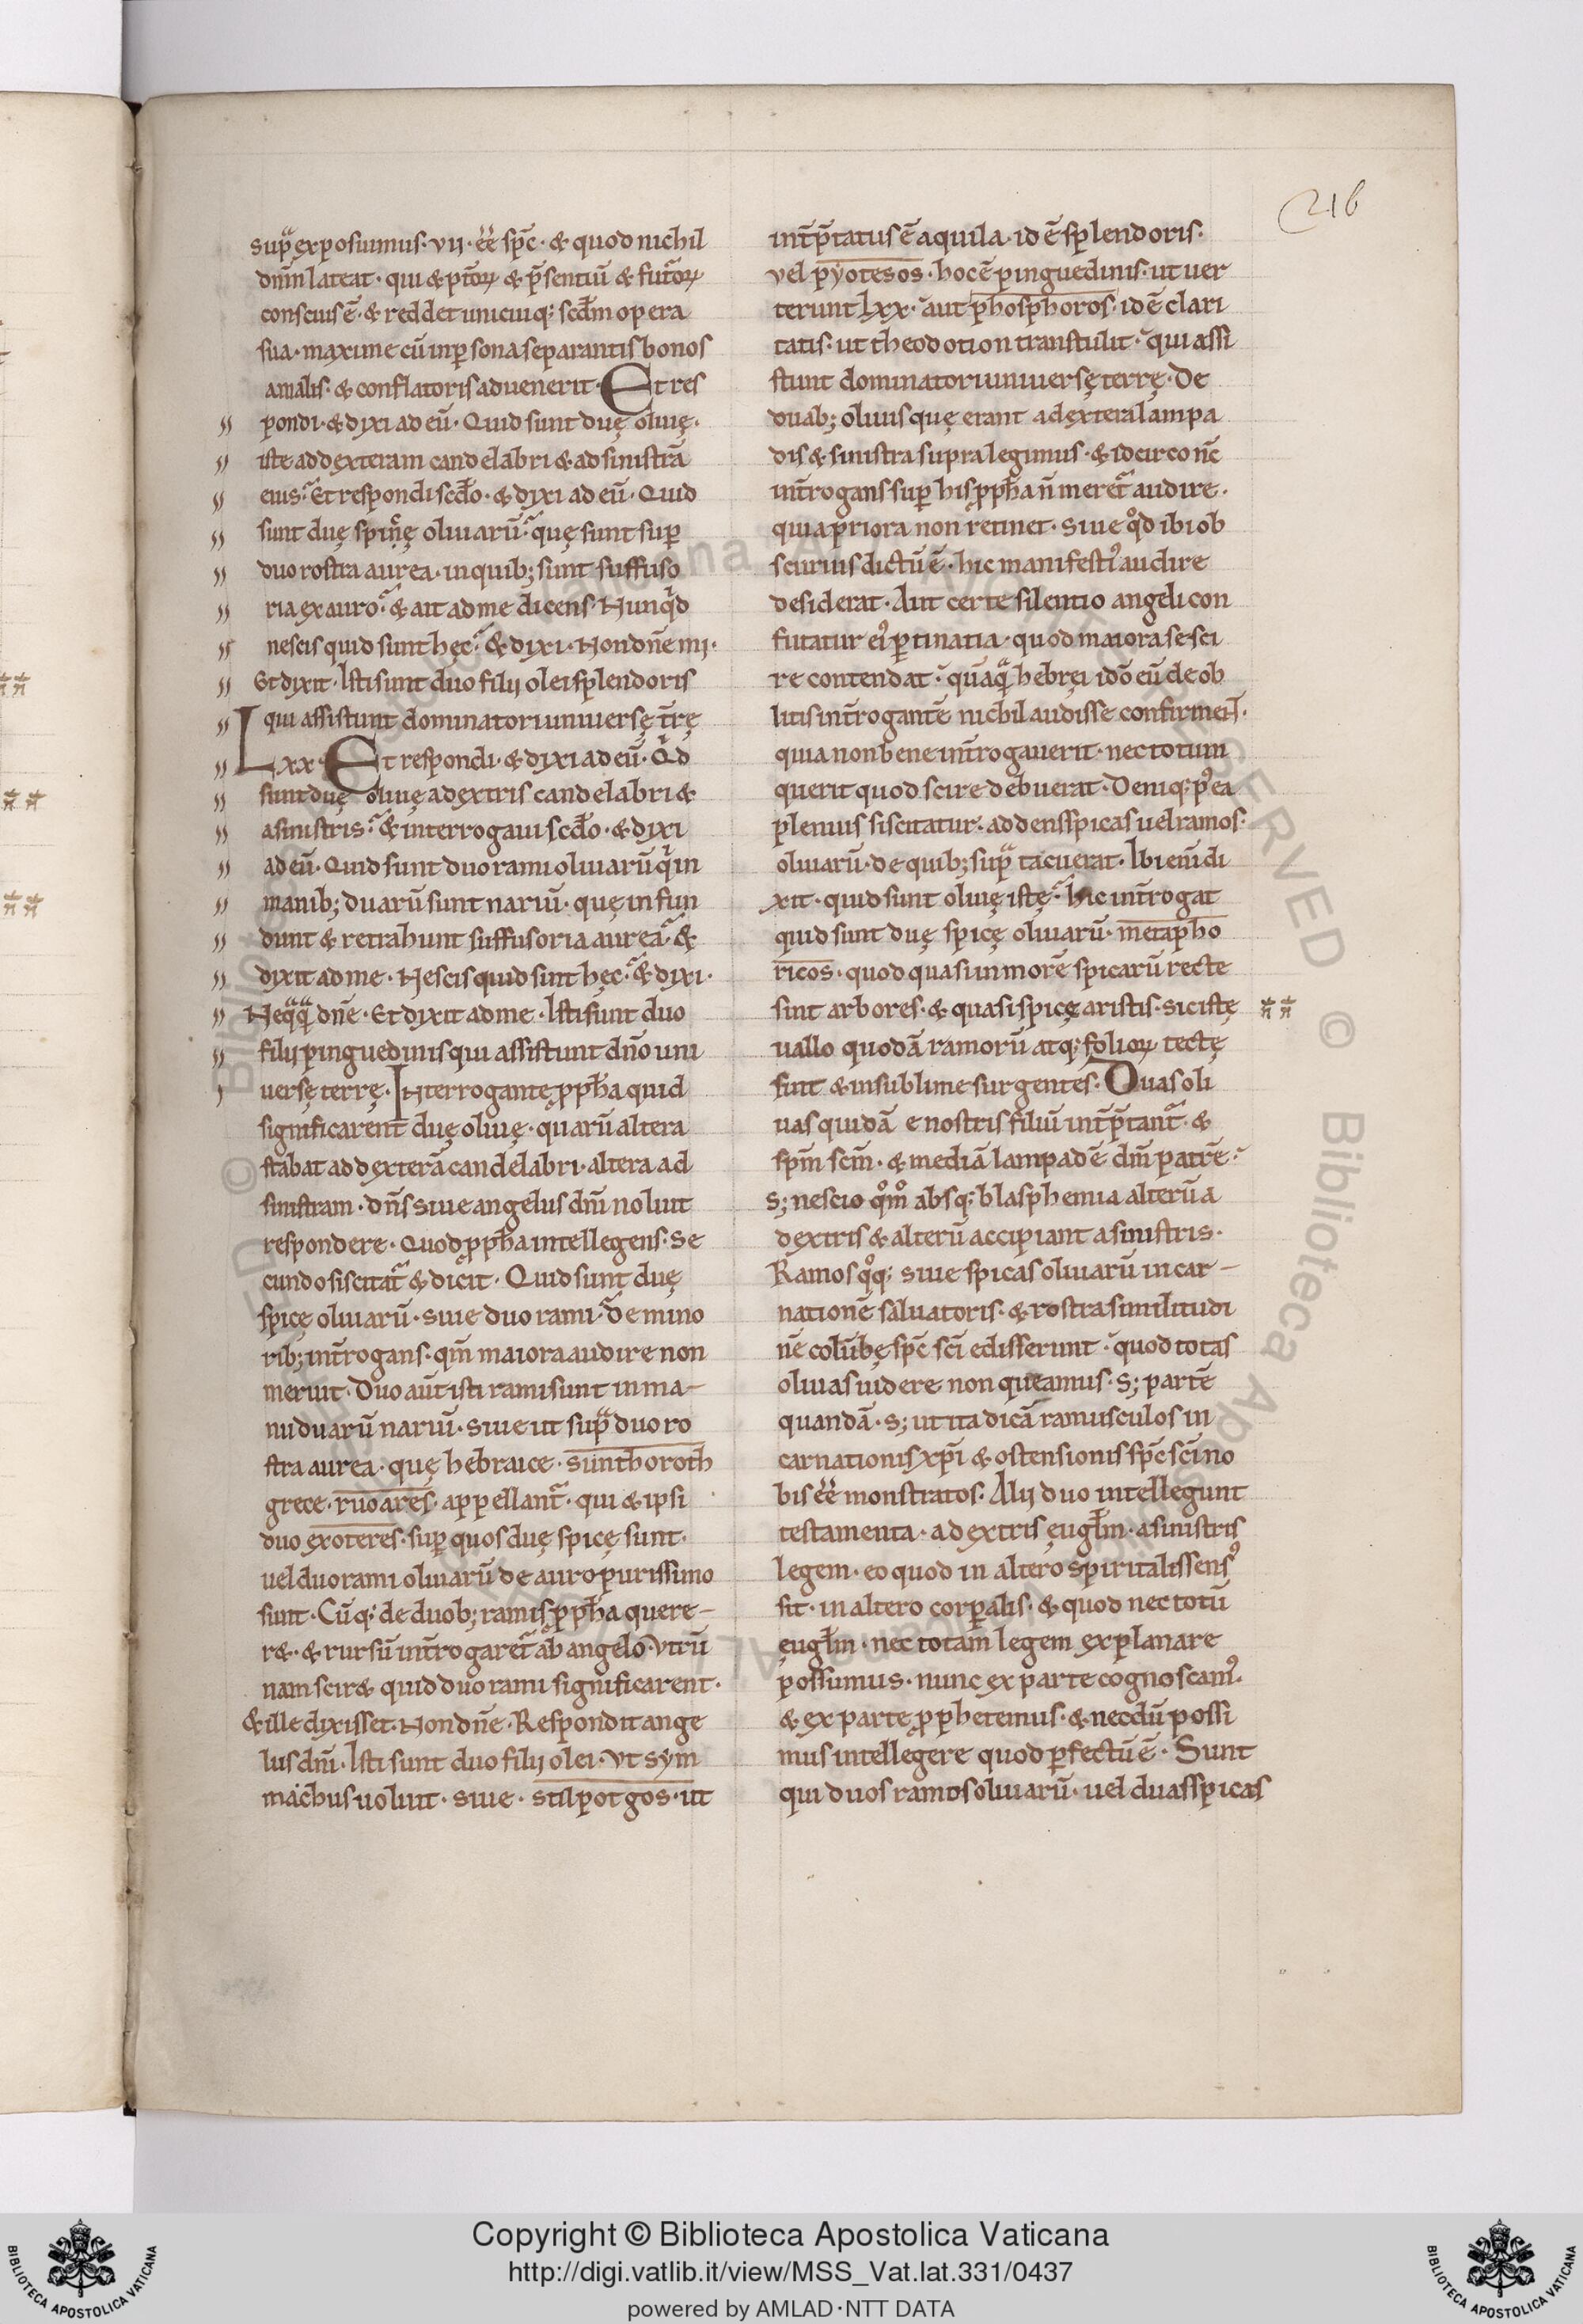 216
sup̄ exposuimus· vij· ee᷑ sp̄c· & quod nichil
dn̄m lateat· qui & pt̄oꝝ & p̄sentiū & fut̄oꝝ
conscius ē· & reddet unicuiq; scd̄m opera
sua· maxime cū in ꝑsona separantis bonos
a malis· & conflatoris aduenerit· Et res
pondi· & dixi ad eū· Quid sunt duę oliuę·
iste ad dexteram candelabri & ad sinistrā
eius? Et respondi scd̄o· & dyxi ad eū· Quid
sunt duę spin̄ę oliuarū? quę sunt suꝑ
duo rostra aurea· in quib; sunt suffuso
ria ex auro? & ait ad me dicens· Nunqͥd
nescis quid sunt hęc? & dixi· Non dn̄e mi·
Et dixit· Isti sunt duo filij olei splendoris
qui assistunt dominatori uniuersę t̄rę
Lxx· Et respondi· & dyxi ad eū· Qͥd
sunt duę oliuę a dextris candelabri &
a sinistris? & interrogaui scd̄o· & dyxi
ad eū· Quid sunt duo rami oliuarū qͥ in
manib; duarū sunt nariū· quę infun
dunt & retrahunt suffusoria aurea? &
dixit ad me· Nescis quid sint hęc? & dixi·
Neqͣqͣ dn̄e· Et dyxit ad me· Isti sunt duo
filij pinguedinis qui assistunt dn̄o uni
uersę terrę· Interrogante ꝓpħa quid
significarent duę oliuę· quarū altera
stabat ad dexterā candelabri· altera ad
sinistram· dn̄s siue angelus dn̄i noluit
respondere· Quod ꝓpħa intellegens· se
cundo siscitat᷑ & dicit· Quid sunt duę
spicę oliuarū· siue duo rami? de mino
rib; int̄rogans· qm̄ maiora audire non
meruit· Duo aūt isti rami sunt in ma-
nu duarū nariū· siue ut supͣ duo ro
stra aurea· quę hebraice· sunthoroth
grece· ruoares· appellant᷑· qui & ipsi
duo exoteres· suꝑ quos duę spicę sunt·
uel duo rami oliuarū de auro purissimo
sunt· Cūq; de duob; ramis ꝓpħa quere-
r&· & rursū int̄rogaret᷑ ab angelo· Vtrū
nam scir& quid duo rami significarent·
& ille dixisset· Non dn̄e· Respondit ange
lus dn̄i· Isti sunt duo filij olei· Vt sym
machus uoluit· siue· stilpotgos· ut
int̄p̄tatus ē aquila· id ē splendoris·
vel pyotesos· hoc ē pinguedinis· ut uer
terunt lxx· aut phosphoros· id ē clari
tatis· ut theodotion transtulit· qui assi
stunt dominatori uniuersę terrę· De
duab; oliuis quę erant ad extera lampa
dis & sinistra supra legimus· & idcirco nc̄
int̄rogans suꝑ his ꝓpħa n̄ meret᷑ audire·
quia priora non retinet· siue qͦd ibi ob
scurius dictū ē· hic manifestiꝰ audire
desiderat· Aut certe silentio angeli con
futatur eiꝰ ꝑtinatia· quod maiora se sci
re contendat· quāqͣ hebręi idō eū de ob
litis int̄rogantē nichil audisse confirmen̄t·
quia non bene int̄rogauerit· nec totum
querit quod scire debuerat· Deniq; pꝰ ea
plenius siscitatur· addens spicas uel ramos·
oliuarū· de quib; supͣ tacuerat· Ibi enī di
xit· quid sunt oliuę istę? hic int̄rogat
quid sunt duę spicę oliuarū· metapho
ricos· quod quasi in morē spicarū recte
sint arbores· & quasi spicę aristis· sic istę
uallo quodā ramorū atq; folioꝝ tectę
sint & in sublime surgentes· Duas oli
uas quidā e nostris filiū int̄p̄tant᷑· &
sp̄m sc̄m· & mediā lampadē dm̄ patrē·
s; nescio qͦmͦ absq; blasphemia alterū a
dextris & alterū accipiant a sinistris·
Ramos qͦq; siue spicas oliuarū incar-
nationē saluatoris· & rostra similitudi
nē colūbę sp̄c sc̄i edisserunt· quod totas
oliuas uidere non queamus· S; partē
quandā· s; ut ita dicā ramusculos in
carnationis xp̄i & ostensionis sp̄c sc̄i no
bis ee᷑ monstratos· Alij duo intellegunt
testamenta· a dextris ęugłm· a sinistris
legem· eo quod in altero spiritalis sensꝰ
sit· in altero corꝑalis· & quod nec totū
ęugłm· nec totam legem explanare
possumus· nunc ex parte cognoscamꝰ·
& ex parte ꝓphetemus· & necdū possi
mus intellegere quod ꝑfectū ē· Sunt
qui duos ramos oliuarū· uel duas spicas
Copyright © Biblioteca Apostolica Vaticana
http://digi.vatlib.it/view/MSS_Vat.lat.331/0437
powered by AMLAD·NTT DATA
BIBLIOTECA APOSTOLICA VATICANA
BIBLIOTECA APOSTOLICA VATICANA